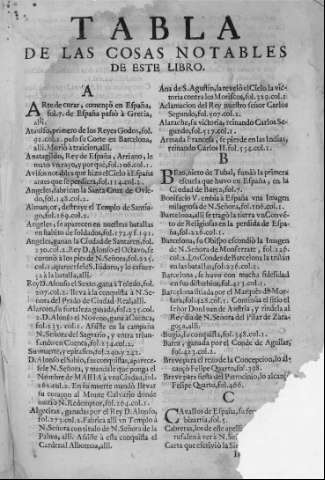 TABLA
DE LAS COSAS NOTABLES
DE ESTE LIBRO.
A
ARte de curar, començò en España,
fol.7. de España passò à Grecia,
alli.
Ataulfo, primero de los Reyes Godos, fol.
puso su Corte en Barcelona,
alli. Muriò à traicion, alli.
Anatagildo, Rey de España, Arriano, le
Avisos notables que hizo el Cielo à España
antes que se perdiesse, fol.
Angeles, fabrican la Santa Cruz de Oviedo,
fol.148.col.2.
Almançor, destruye el Templo de Santiago,
fol.169.col.2.
Angeles, se aparecen en nuestras batallas
en habito de soldados, fol.172.y f.191.
Angeles, ganan la Ciudad de Santaren, fol.
Rey D. Alonso el Octavo, se
coronò à los pies de N. Señora, fol.
col.2. aparecesele S. Isidoro, y le
à la batalla, alli.
Rey D. Alonso el Sexto, gana à Toledo, fol.
207.col.2. lleva à la conquista à N. Señora
del Prado de Ciudad-Real, alli.
Alarcon, su fortaleza ganada, fol.235.col.
2. D. Alonso el Noveno, gana à Cuenca,
fol.231.col. Assiste en la campaña
N. Señora del Sagrario, y entra triunfando
en Cuenca, fol.234.col.
Su muerte, y epitafio, fol.240.y 242.
D. Alonso el Sabio, sus conquistas, aparecesele
N. Señora, y mandale que ponga el
Nombre de MARIA à vna Ciudad, fol.
261.col.2. En su muerte mandò llevar
su coraçon al Monte Calvario donde
muriò N. Redemptor, fol.264.col.1.
Algeciras, ganadas por el Rey D. Alonso,
fol.272.col.2. Fabrica alli vn Templo à
N. Señora con titulo de N. Señora de la
Palma, alli. Assiste à esta conquista el
Cardenal Albornoz, alli.
Ana de S. Agustin, la revelò el Cielo la victoria
contra los Moriscos, fol.359.col.1.
Aclamacion del Rey nuestro señor Carlos
Segundo, fol.507.col.1.
Alarache, su victoria, reinando Carlos Segundo,
fol.517.col.1.
Armada Francesa, se pierde en las Indias,
reinando Carlos II. fol.554.col.1.
B
BRigo, nieto de Tubal, fundò la primera
escuela que huvo en España, en la
Ciudad de Baeça, fol.7.
Bonifacio V. embia à España vna Imagen
milagrosa de N. Señora, fol.108.col.1.
Barcelona, alli se tragò la tierra vn Convento
de Religiosas en la perdida de España,
fol.
Barcelona, su Obispo escondiò la Imagen
de N. Señora de Monserrate, fol.
col.2. Los Condes de Barcelona la traìan
en las batallas, fol.276.col.1.
Barcelona, se huvo con mucha fidelidad
en su fol.
Barcelona, sitiada por el Marquès de Mortara,
fol.428.col.1. Continùa el sitio el
señor Don Iuan de Austria, y rindela al
Rey dia de N. Señora del Pilar de Zaragoça,
alli.
Bugia, se conquista, fol.348.col.1.
Barra, ganada por el Conde de Aguilar,
fol.423.col.1.
Breve para el rezado de la Concepcion, lo alcançò
Felipe Quarto, fol.398.
Breve para fiesta del Patrocinio, lo alcançò
Felipe Quarto, fol.466.
C
CAvallos de España, su
bizarria, fol.5.
Cabreras, los de este apellido
Carta que escriviò la